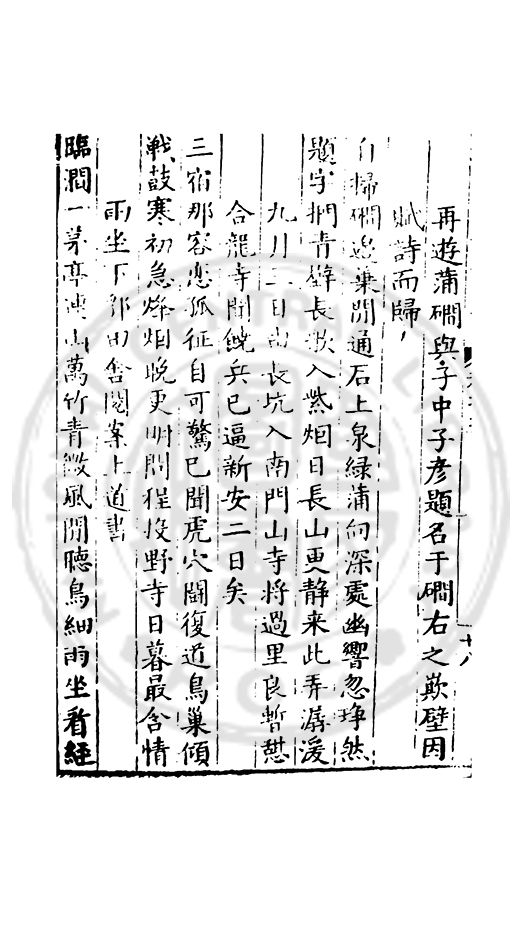 再遊蒲磵與子中子彥題名于磵右之欹壁因
賦詩而歸
自掃磵邊葉閒通石上泉綠蒲向深處幽響忽琤然
題字捫青壁長歌入紫烟日長山更静来此弄潺湲
九月二日由長坑入南門山寺將過里良暫憇
合龍寺聞饒兵已逼新安二日矣
三宿那容恋孤征自可驚已聞虎穴鬭復道鳥巢傾
戰鼓寒初急烽烟晩更明間程投野寺日暮最含情
雨坐下田舍閱案上道書
臨澗一茅亭山萬竹青微風閒聴鳥細雨坐看經
十八